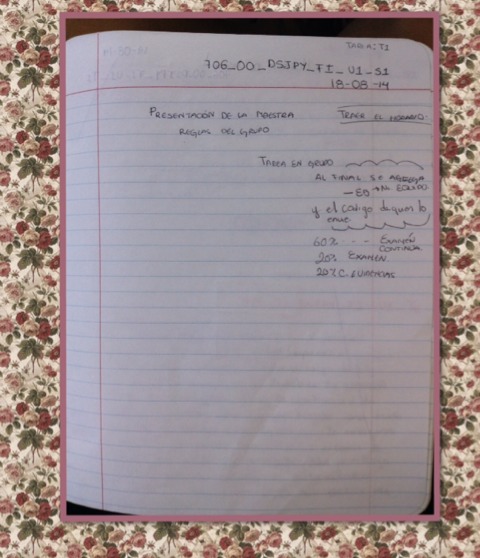 TAREA: T1
706_00_DSIPY_TI_U1_S1
18-08-14
PRESENTACIÓN DE LA MAESTRA
TRAER EL HORARIO.
REGLAS DEL GRUPO
TAREA EN GRUPO
AL FINAL SE AGREGA
y el codigo de quien lo
envie.
60% - - EXAMEN
CONTINUA
20% EXAMEN.
20% C. EVIDENCIAS